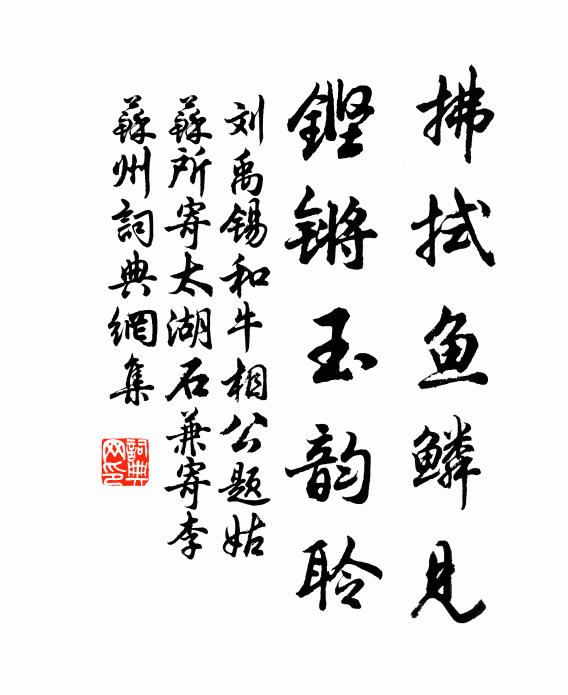 拂拭鱼鳞见
铿锵玉韵聆
刘禹锡和牛相公题姑
苏所寄太湖石兼寄李
蘇州詞典網集
詞典网印